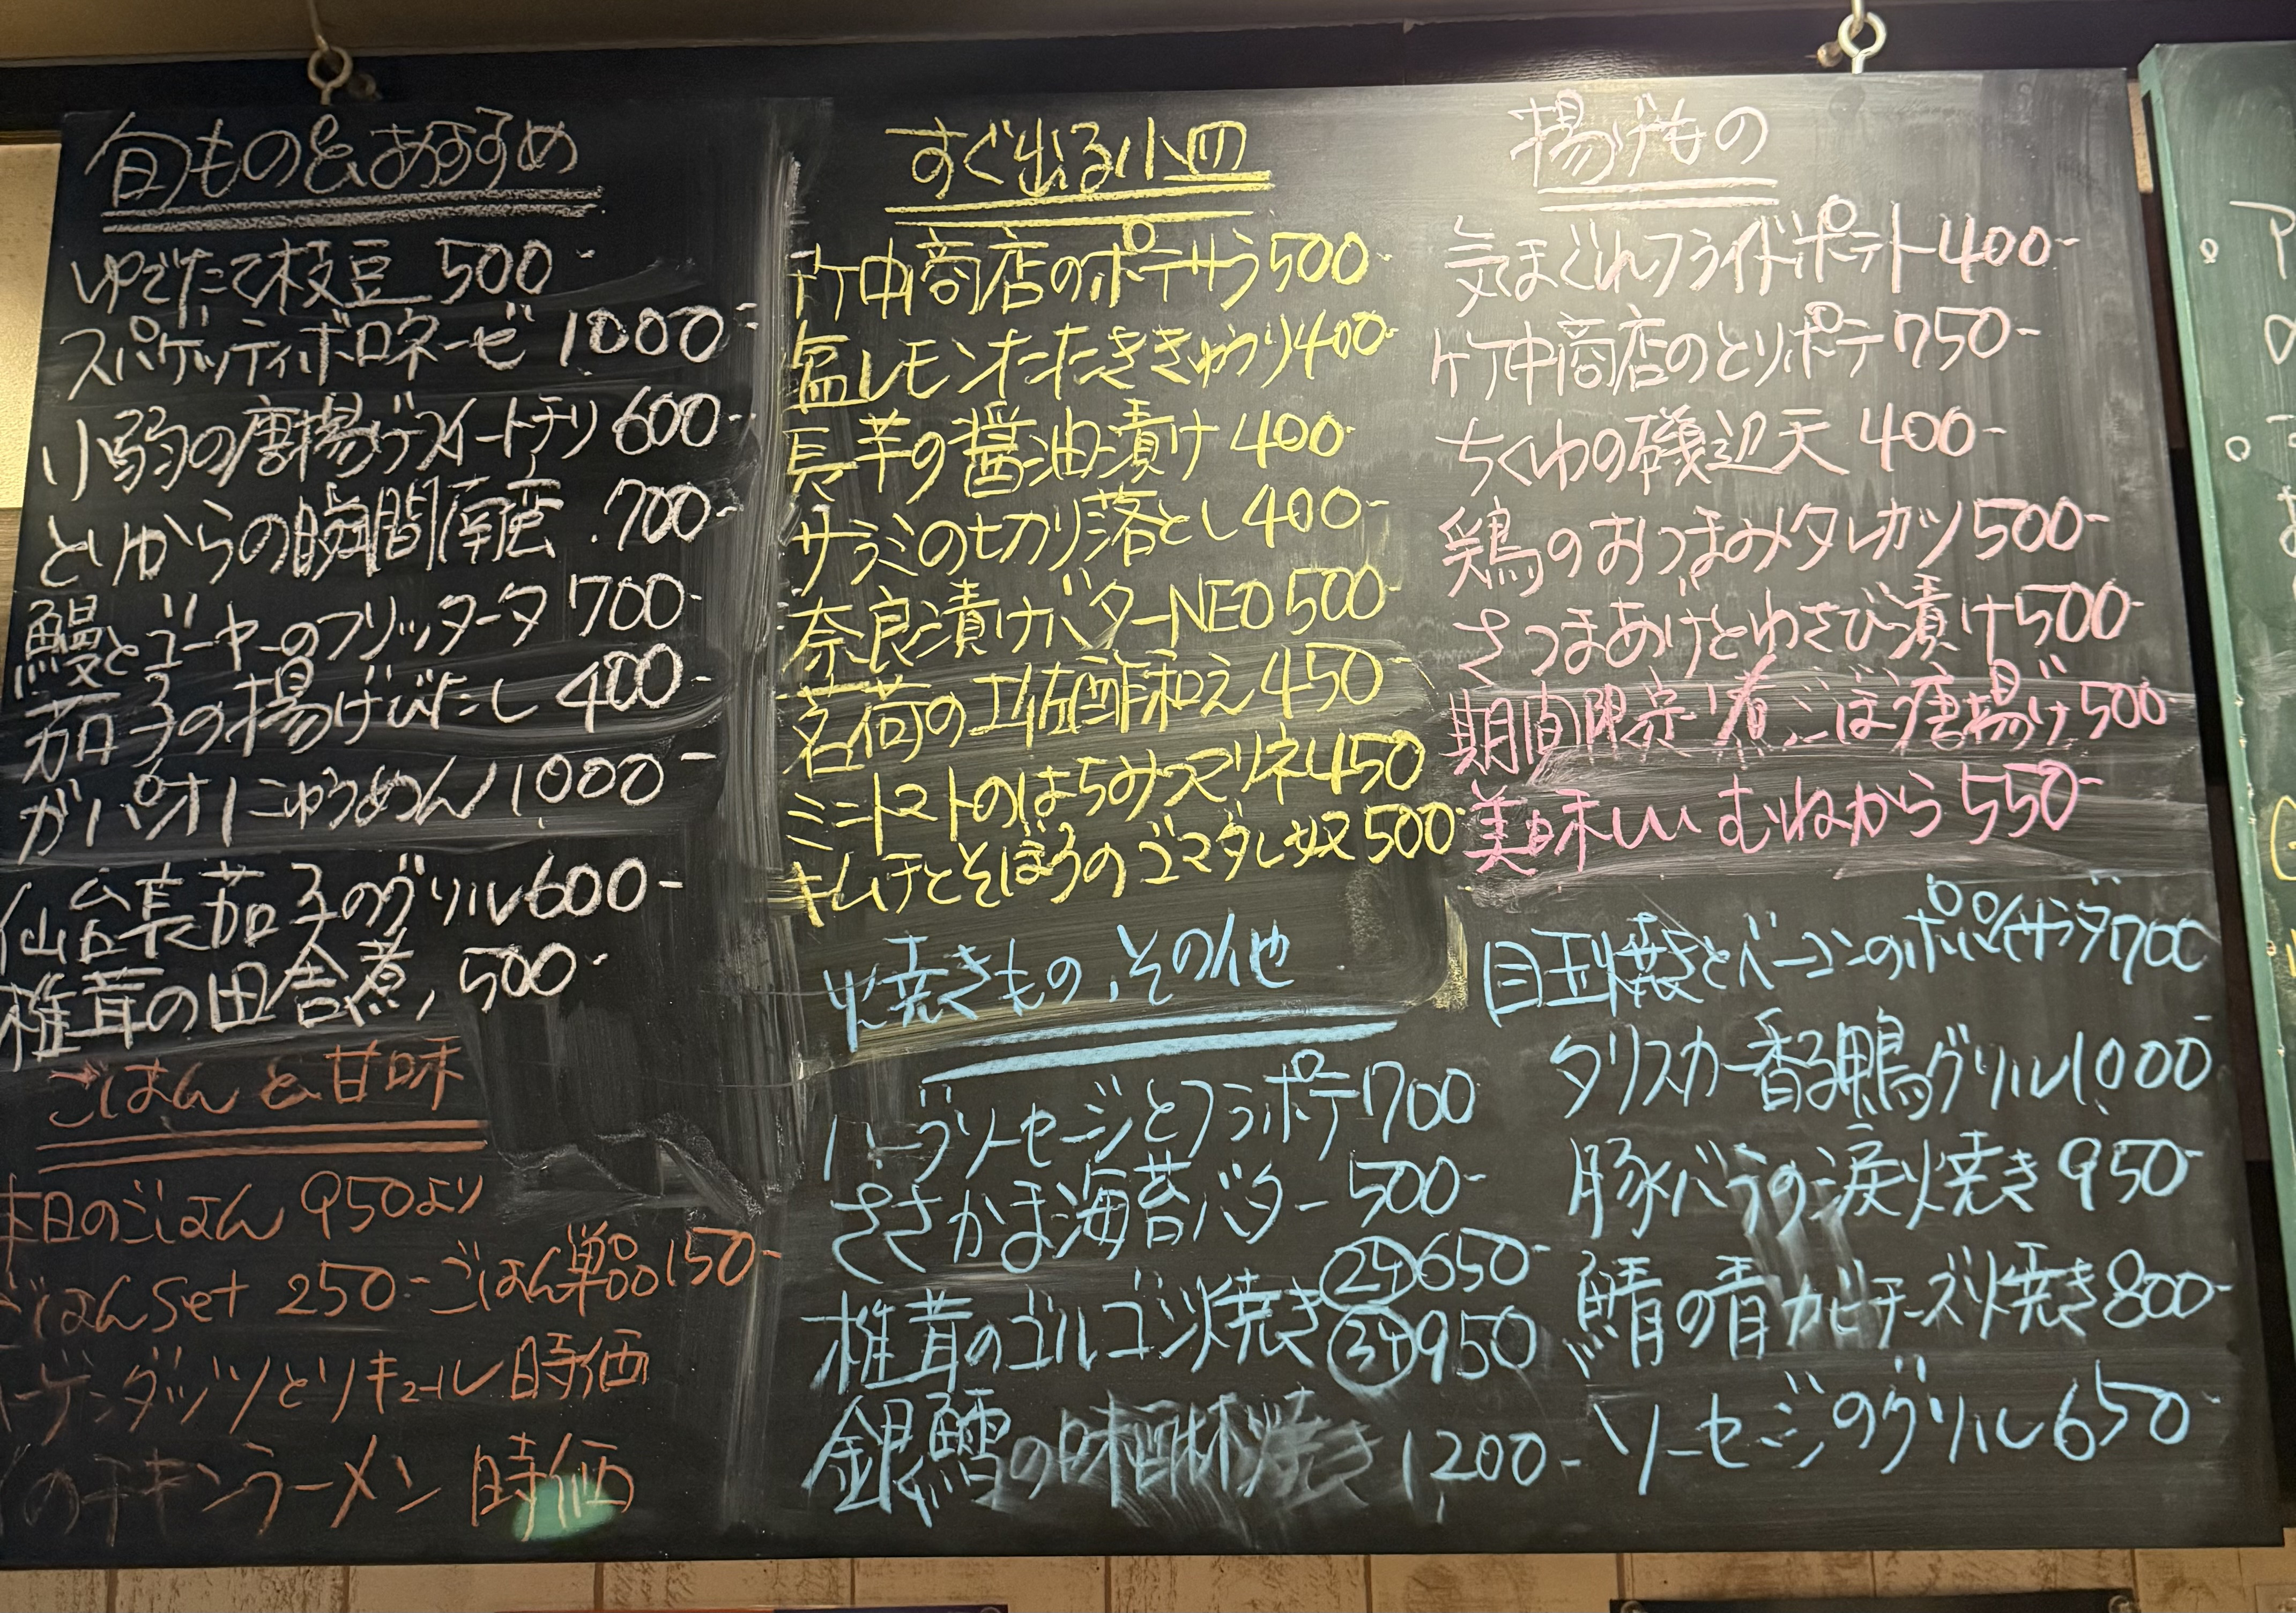 旬もの&おすすめ
ゆでたて枝豆 500-
スパゲッティボロネーゼ 1,000-
小鯵の唐揚げスイートチリ 600-
とりからの瞬間南蛮 700-
鰻とゴーヤーのフリッタータ 700-
茄子の揚げびたし 400-
ガパオにゅうめん 1,000-
仙台長茄子のグリル 600-
椎茸の田舎煮 500-
ごはんと甘味
本日のごはん 950より
ごはんSet 250- ごはん単品 150-
ーゲンダッツとリキュール 時価
のチキンラーメン 時価
すぐ出る小皿
竹中商店のポテサラ 500-
塩レモンたたききゅうり 400-
長芋の醤油漬け 400-
サラミの切り落とし 400-
奈良漬けバターNEO 500-
茗荷の土佐酢和え 450-
ミニトマトのはちみつマリネ 450
キムチとそぼろのゴマダレ奴 500-
焼きもの、その他
ハーブソーセージとフラポテ 700
ささかま海苔バター 500-
椎茸のゴルゴンゾ焼き ②ケ 650-
③ケ 950
銀鱈の味醂焼き 1,200-
揚げもの
気まぐれフライドポテト 400-
竹中商店のとりポテ 750-
ちくわの磯辺天 400-
鶏のおつまみタレカツ 500-
さつまあげとわさび漬け 500-
期間限定 煮ごぼう唐揚げ 500-
美味しいむねから 550-
目玉焼きとベーコンのポパイサラダ 700
タリスカー香る鴨グリル 1,000-
豚バラの炭火焼き 950-
鯖の青カビチーズ焼き 800-
ソーセージのグリル 650-